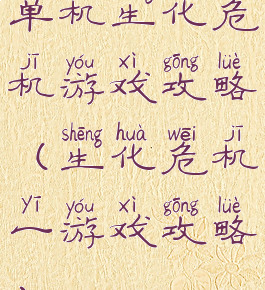 单机生化危
jī yóu xì gōng lüè
机游戏攻略
shēng huà wēi jī
(生化危机
yī yóu xì gōng lüè
一游戏攻略
)